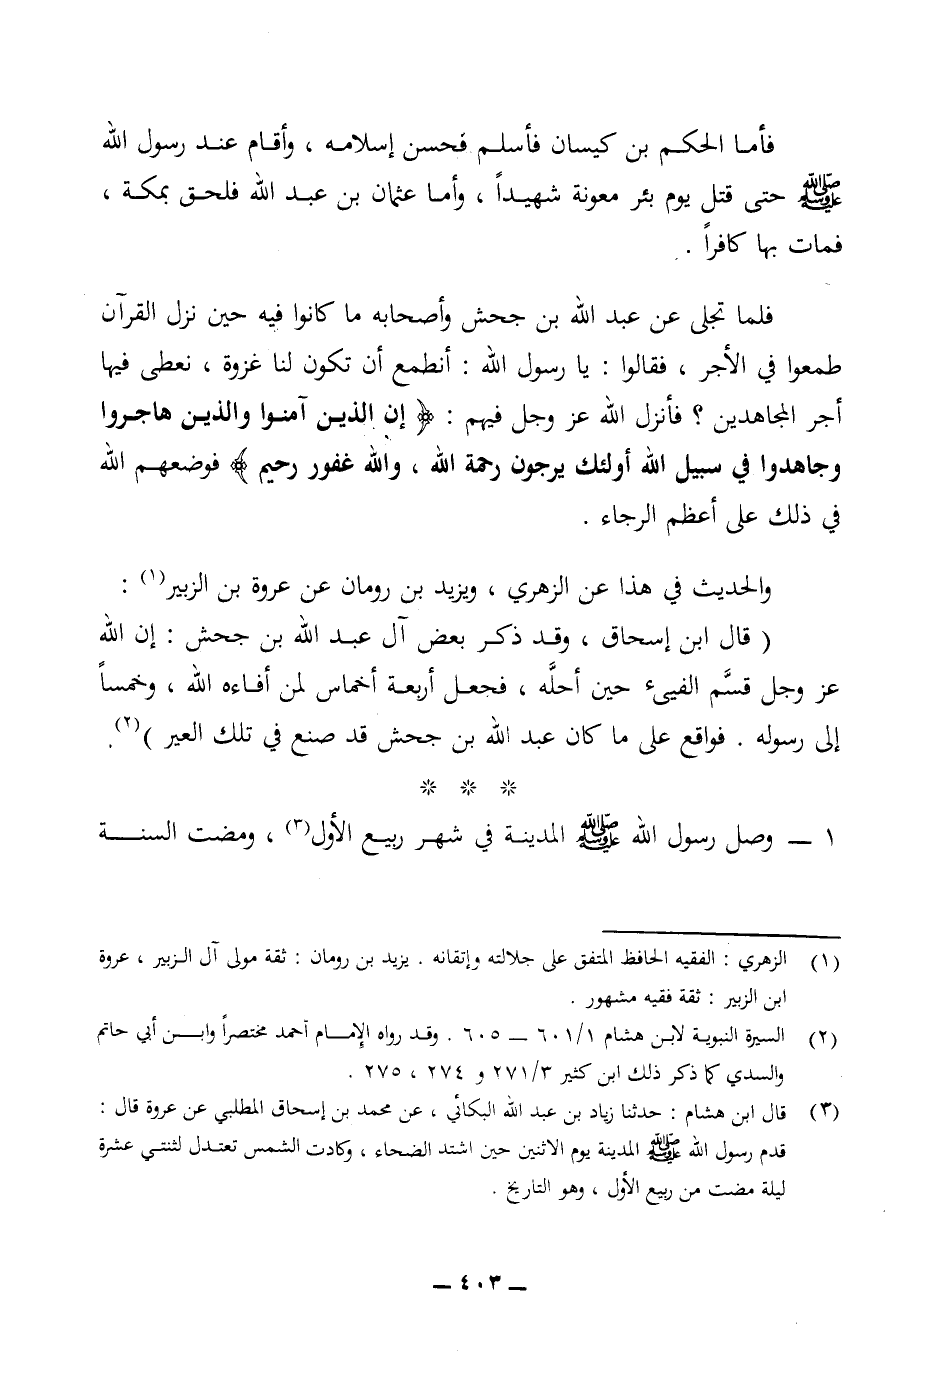 فأما الحكم بن كيسان فأسلم فحسن إسلامه ، وأقام عند رسول الله
ﷺ حتى قتل يوم بئر معونة شهيداً ، وأما عثمان بن عبد الله فلحق بمكة ،
فمات بها كافراً .
فلما تجلى عن عبد الله بن جحش وأصحابه ما كانوا فيه حين نزل القرآن
طمعوا في الأجر ، فقالوا : يا رسول الله : أنطمع أن تكون لنا غزوة ، نعطى فيها
أجر المجاهدين ؟ فأنزل الله عز وجل فيهم : ﴿ إن الذين آمنوا والذين هاجروا
وجاهدوا في سبيل الله أولئك يرجون رحمة الله ، والله غفور رحيم ﴾ فوضعهم الله
في ذلك على أعظم الرجاء .
والحديث في هذا عن الزهري ، ويزيد بن رومان عن عروة بن الزبير(١) :
( قال ابن إسحاق ، وقد ذكر بعض آل عبد الله بن جحش : إن الله
عز وجل قسَّم الفيىء حين أحلَّه ، فجعل أربعة أخماس لمن أفاءه الله ، وخمساً
إلى رسوله . فواقع على ما كان عبد الله بن جحش قد صنع في تلك العير )(٢).
* * *
١ ــ وصل رسول الله ﷺ المدينة في شهر ربيع الأول(٣) ، ومضت السنة
(١) الزهري : الفقيه الحافظ المتفق على جلالته وإتقانه . يزيد بن رومان : ثقة مولى آل الزبير ، عروة
ابن الزبير : ثقة فقيه مشهور .
(٢) السيرة النبوية لابن هشام ٦٠١/١ ــ ٦٠٥ . وقد رواه الإمام أحمد مختصراً وابن أبي حاتم
والسدي كما ذكر ذلك ابن كثير ٢٧١/٣ و ٢٧٤ ، ٢٧٥ .
(٣) قال ابن هشام : حدثنا زياد بن عبد الله البكائي ، عن محمد بن إسحاق المطلبي عن عروة قال :
قدم رسول الله ﷺ المدينة يوم الاثنين حين اشتد الضحاء ، وكادت الشمس تعتدل لثنتي عشرة
ليلة مضت من ربيع الأول ، وهو التاريخ .
ــ ٤٠٣ ــ